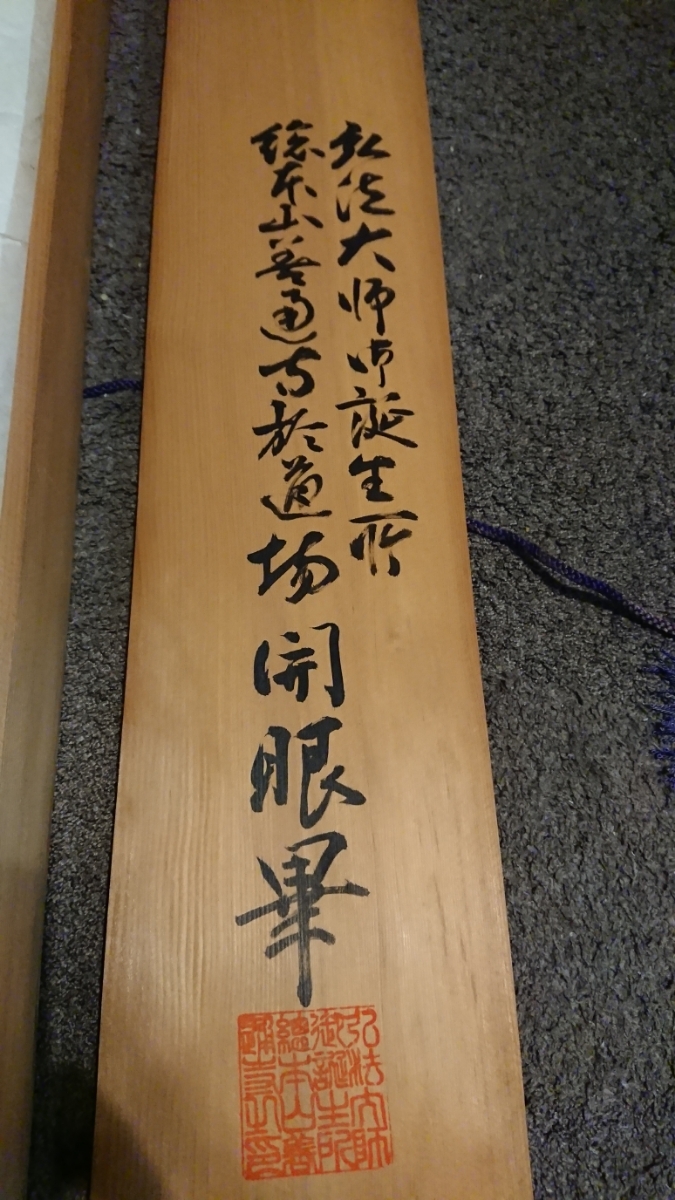 弘法大師御誕生所
総本山善通寺於道場開眼畢
弘法大師
御誕生所
總本山善
通寺之印